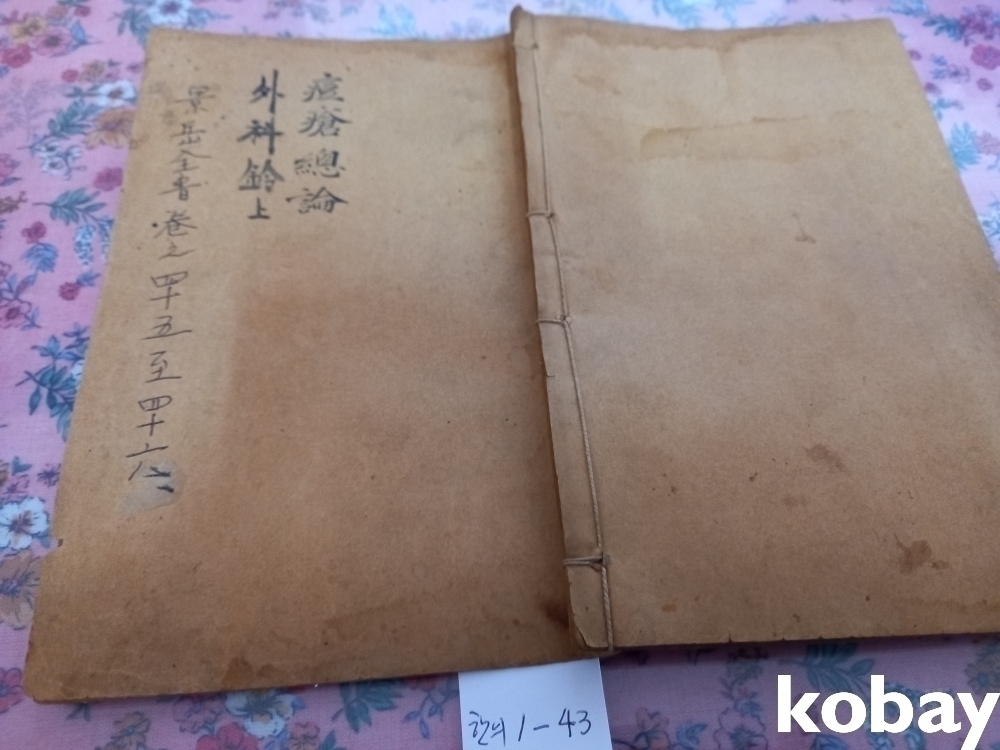 痘瘡總論
外科鈐上
景岳全書卷之四十五至四十六
한의 1-43
kobay